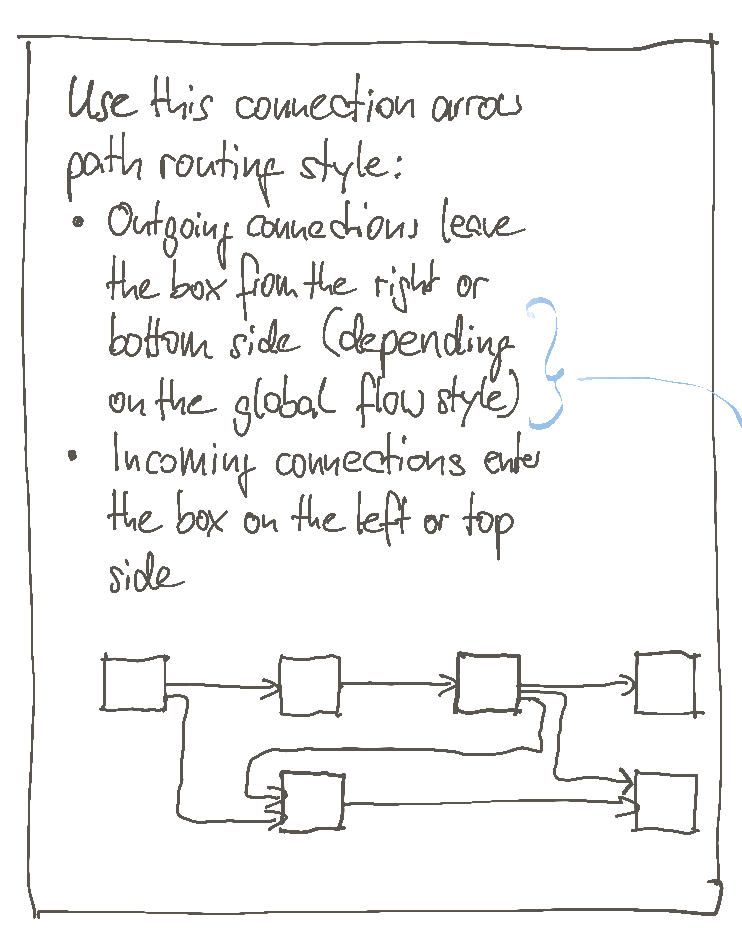 Use this connection arrow
path routing style:
• Outgoing connections leave
the box from the right or
bottom side (depending
on the global flow style)
• Incoming connections enter
the box on the left or top
side